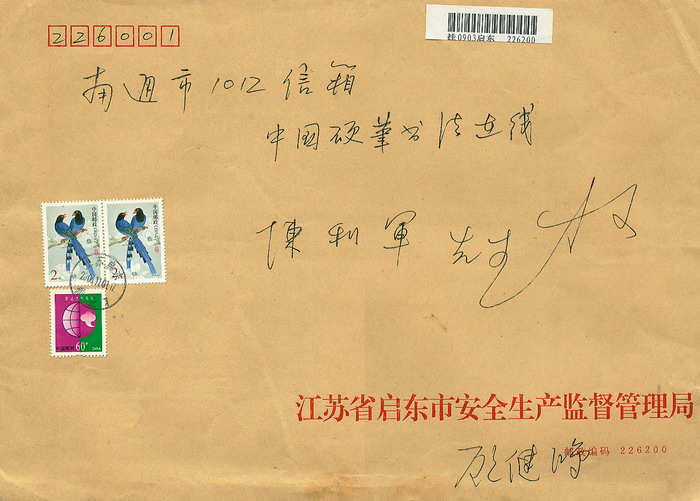 226001
挂0903启东 226200
南通市1012信箱
中国硬笔书法在线
陳利軍 先生 收
中国邮政
中国邮政
2元
2元
中国邮政 60分
江苏省启东市安全生产监督管理局
邮政编码 226200
顾健